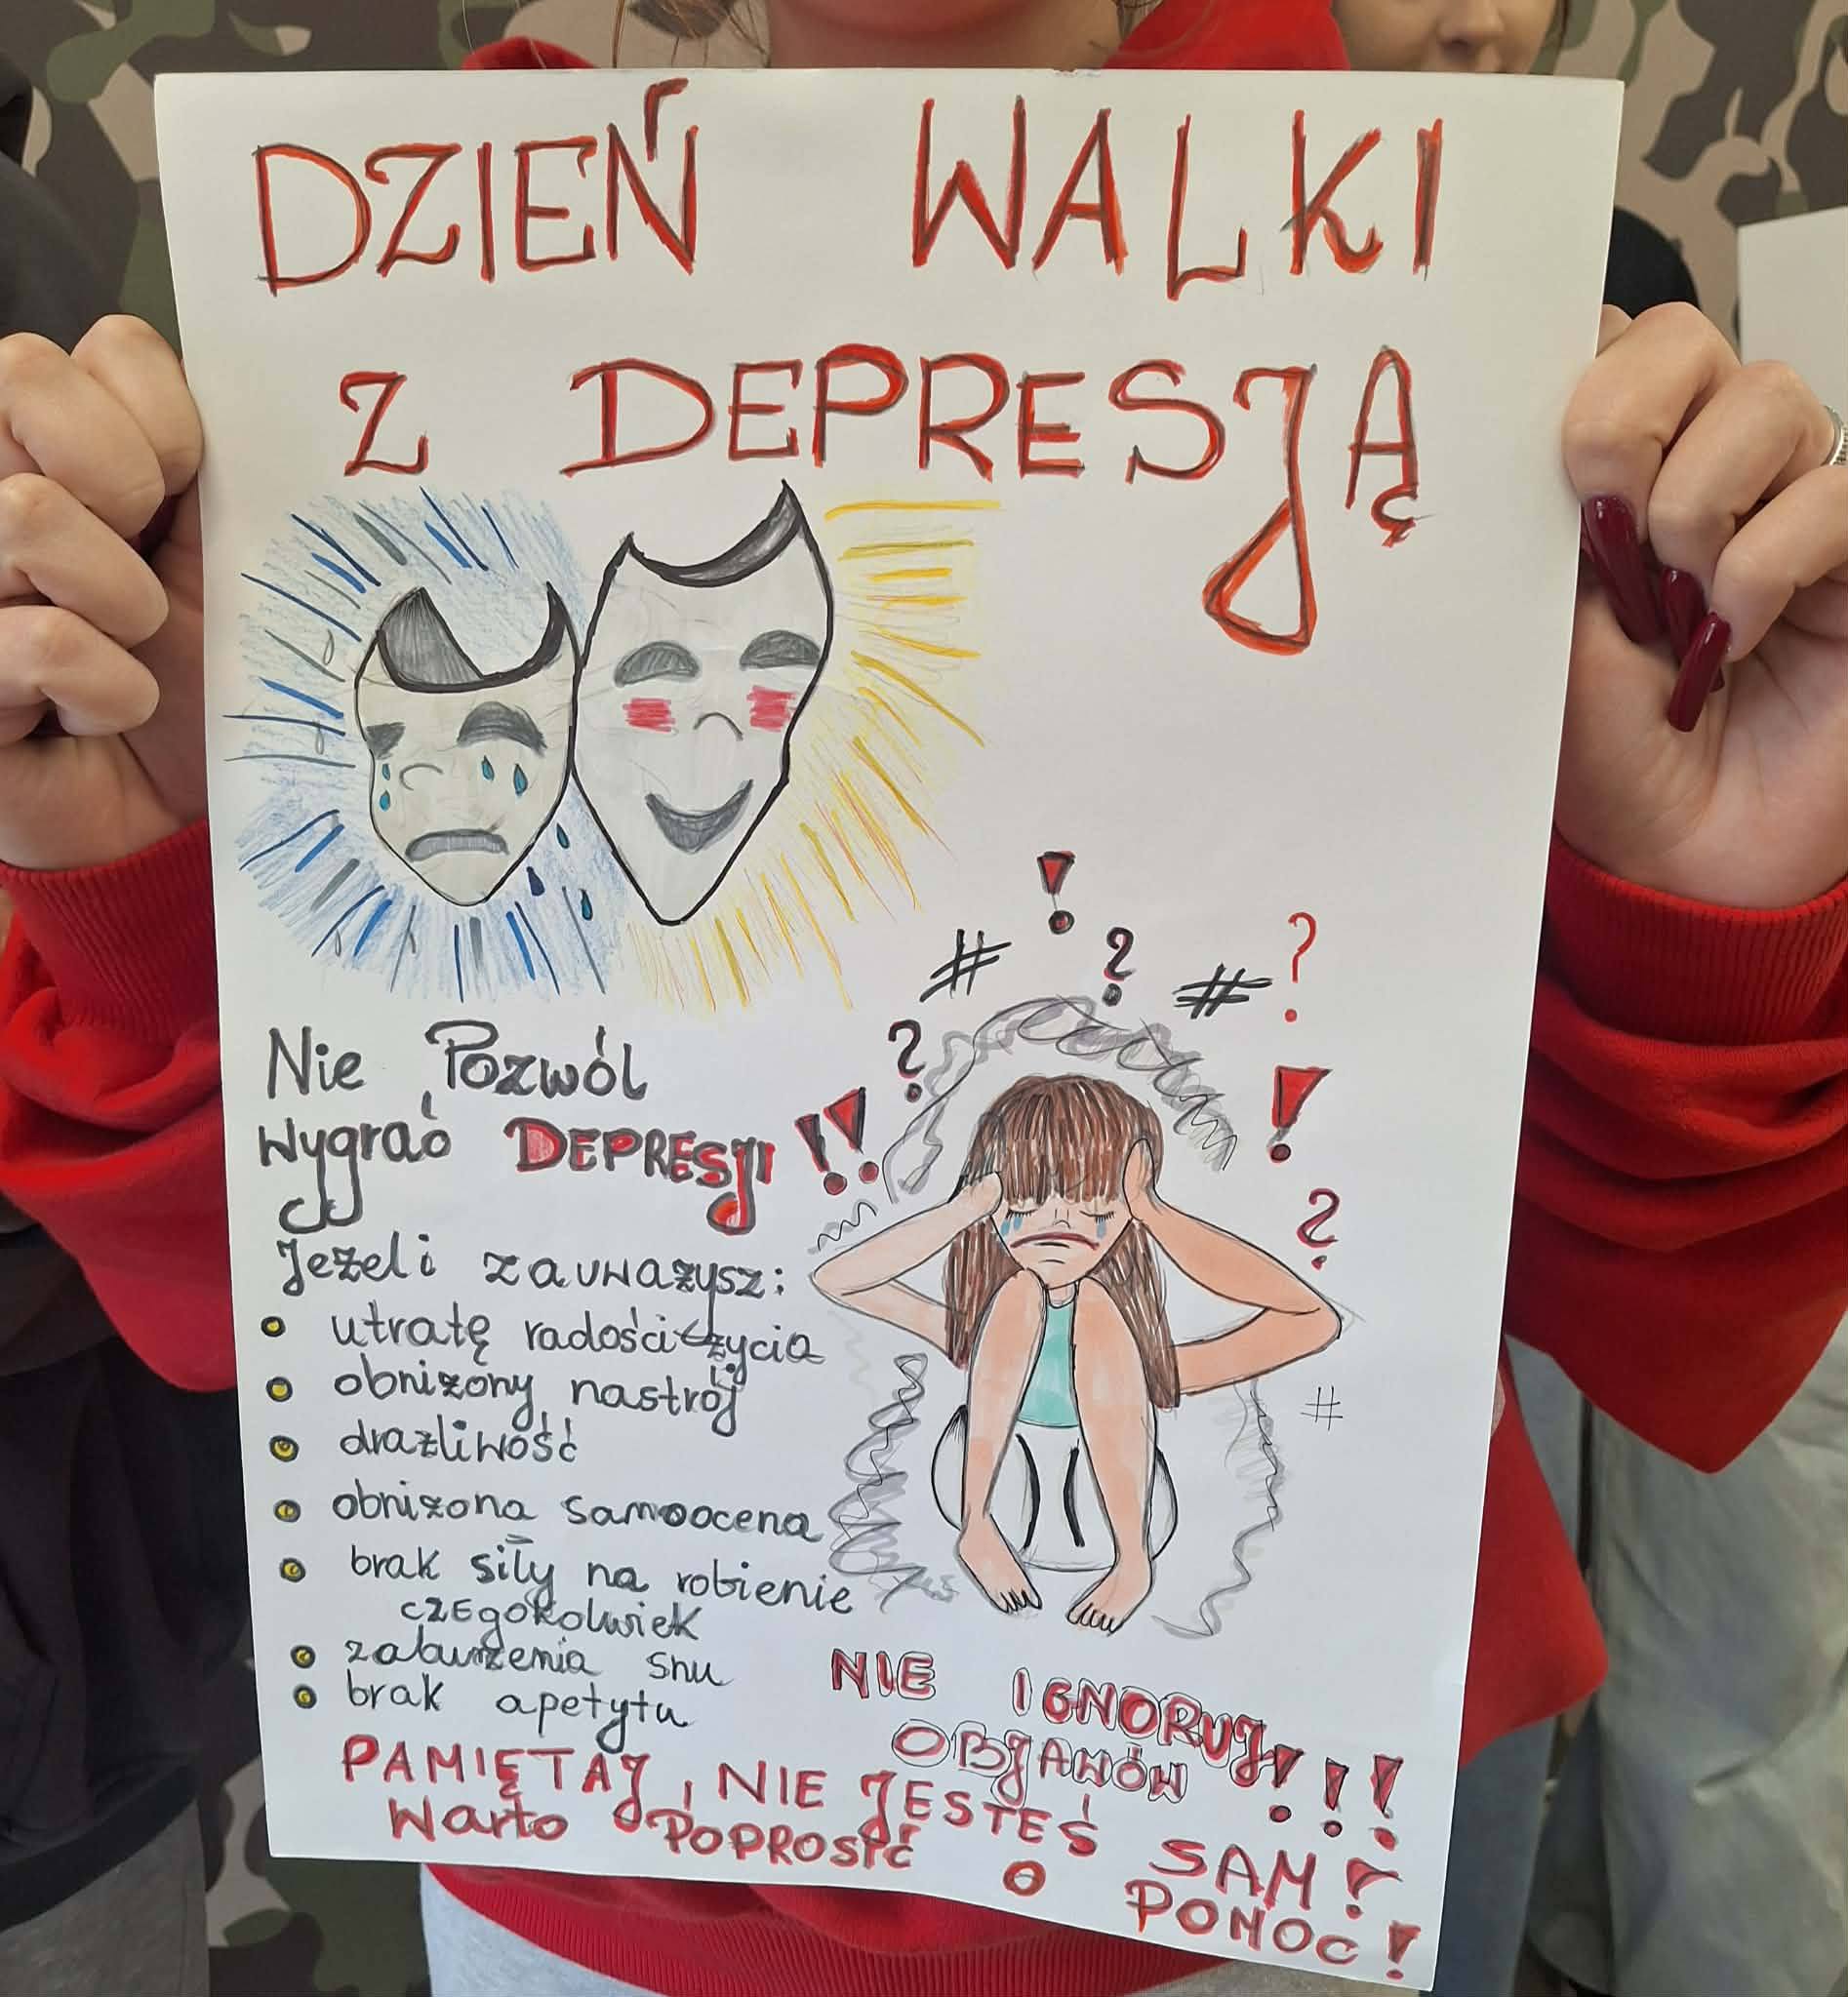 DZIEŃ WALKI
Z DEPRESJĄ
Nie Pozwól
wygrać DEPRESJI !!
Jeżeli zauważysz:
utratę radości życia
obniżony nastrój
drażliwość
obniżona samoocena
brak siły na robienie
czegokolwiek
zaburzenia snu
brak apetytu
NIE IGNORUJ !!!
OBJAWÓW
PAMIĘTAJ, NIE JESTEŚ SAM!
Warto POPROSIĆ O POMOC!
# ! ? # ?
? ! ? #